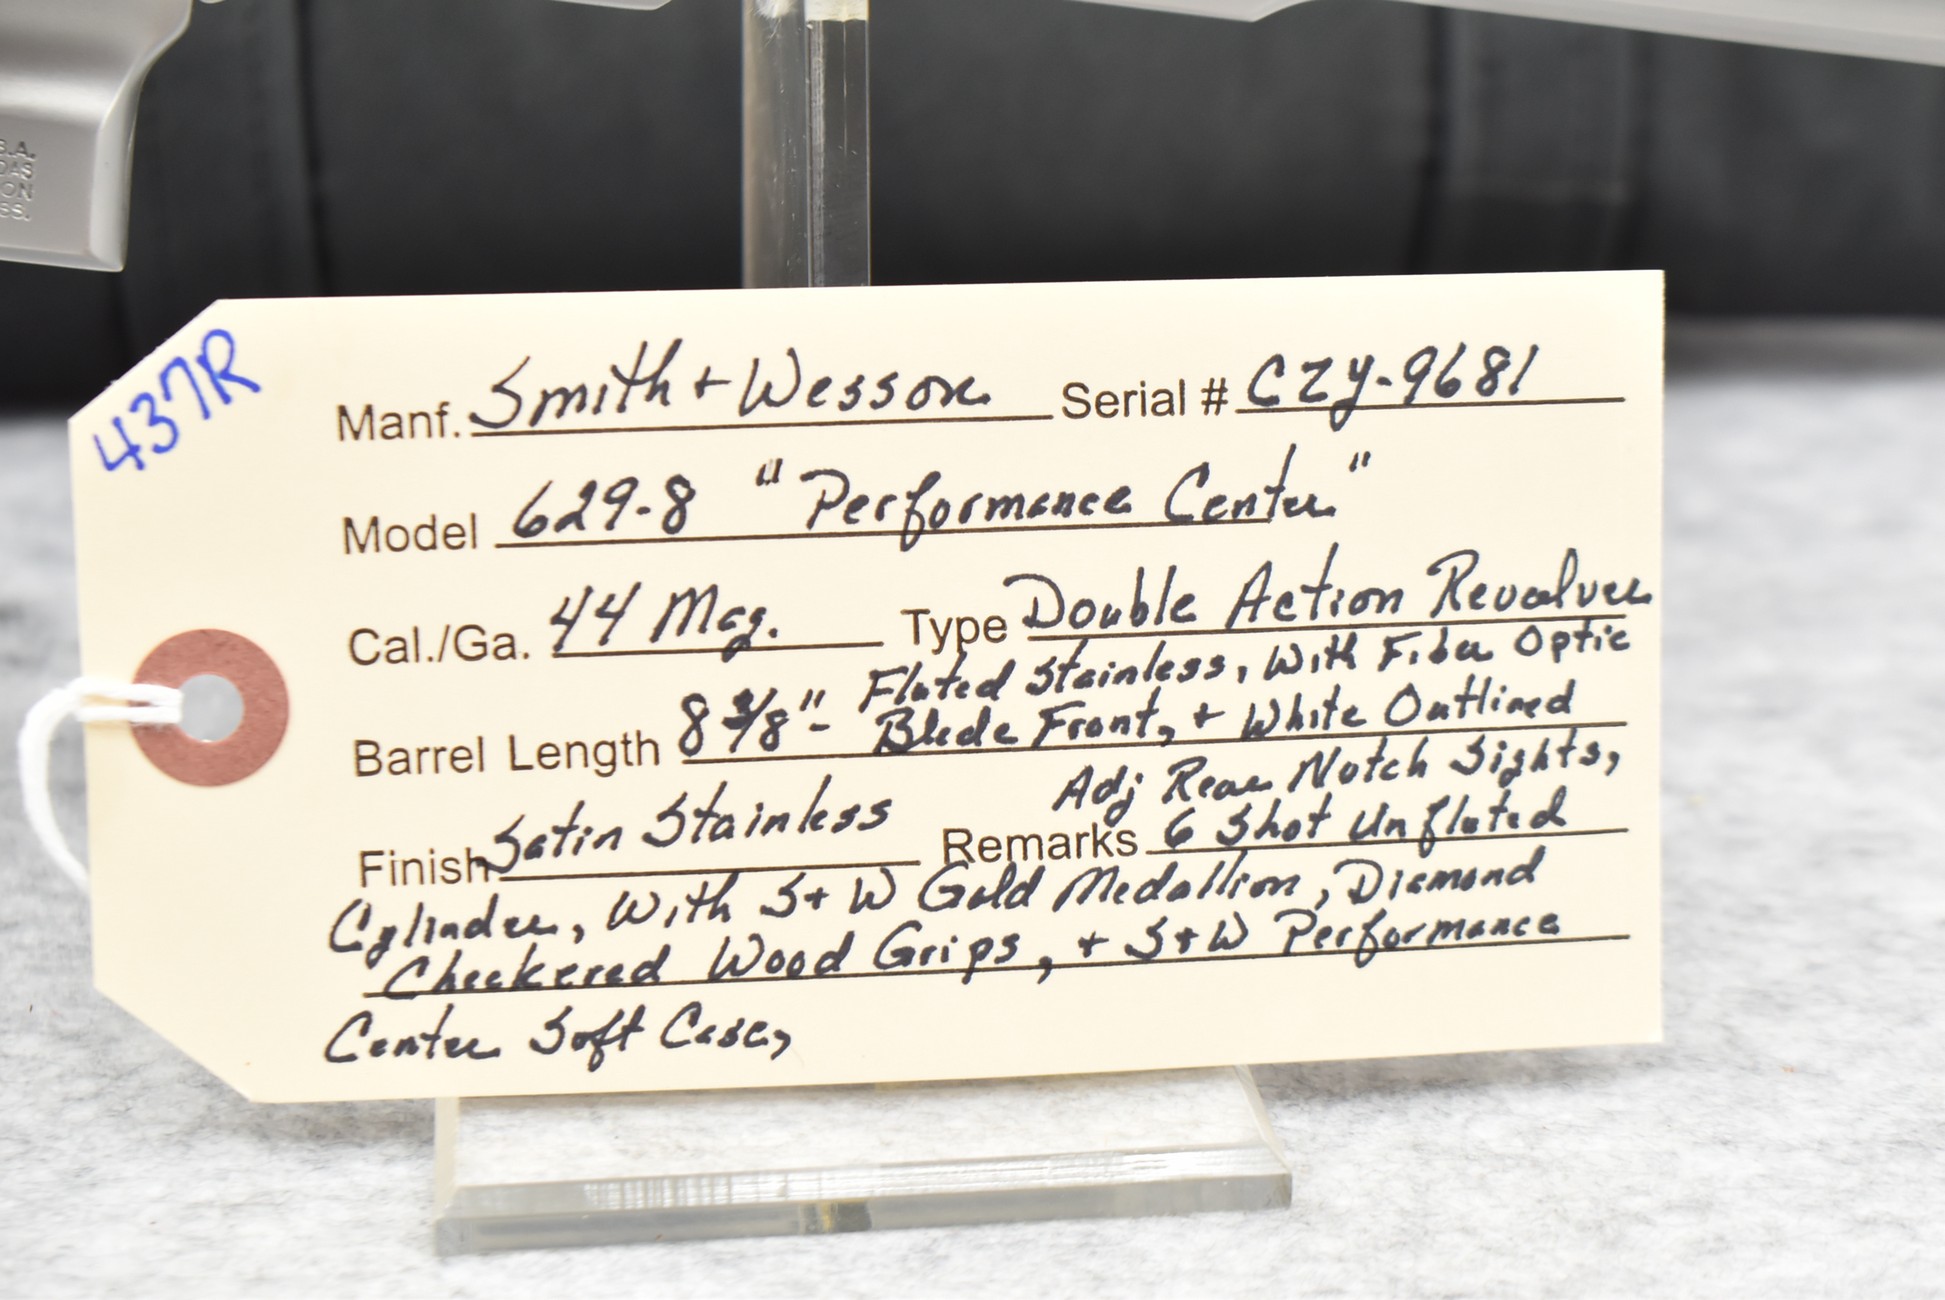 S.A.
DAS
ON
SS.
437R
Manf. Smith + Wesson Serial # CZY-9681
Model 629-8 "Performance Center"
Cal./Ga. 44 Mag. Type Double Action Revolver
Fluted Stainless, With Fiber Optic
Barrel Length 8 3/8"- Blade Front, + White Outlined
Adj Rear Notch Sights,
Finish Satin Stainless Remarks 6 Shot Unfluted
Cylinder, With S+W Gold Medallion, Diamond
Checkered Wood Grips, + S+W Performance
Center Soft Case,